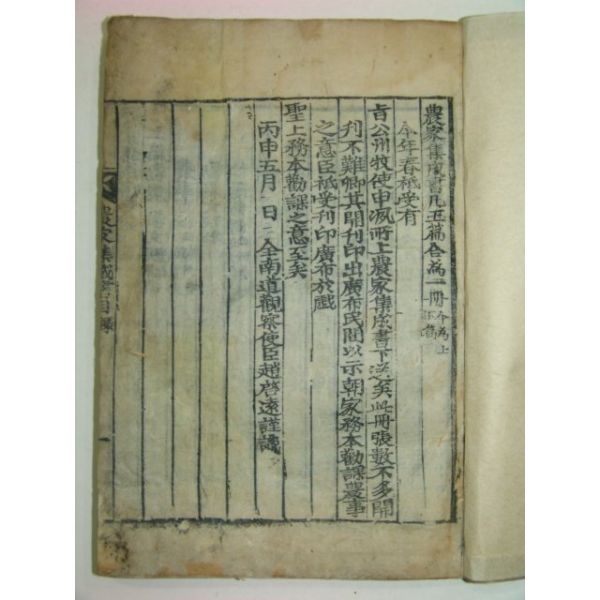 農家集成書凡五篇合為一冊
今年春祗受有
旨公州牧使申洬所上農家集成書下送矣此冊張數不多開
刊不難卿其開刊印出廣布民間以示朝家務本勸課農事
之意臣祗受刊印廣布於戲
聖上務本勸課之意至矣
丙申五月 日 全南道觀察使臣趙啓遠謹識
農家集成書目錄